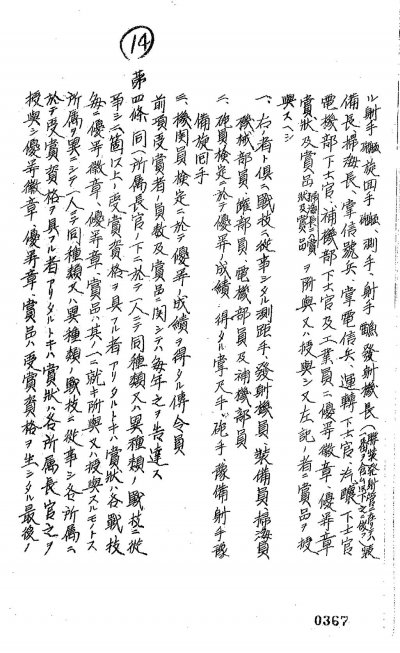 14
ル射手、旋回手、測手、射手、發射機長(聯装發射管ニ在リテハ
備長、掃海長、掌信號兵、掌電信兵、運轉下士官、汽罐下士官
電機部下士官、補機部下士官及工業員ニ優等徽章、優等章
賞狀及賞品(掃海長ニハ賞狀及賞品)ヲ所與又ハ授與シ又左記ノ者ニ賞品ヲ授
與スヘシ
一、右ノ者ト俱ニ戰技ニ從事シタル測距手、發射機員、裝備員、掃海員、
機械部員、罐部員、電機部員及補機部員
二、砲員檢定ニ於テ優等ノ成績ヲ得タル掌尺手、砲手、豫備射手、豫
備旋回手
三、機関員檢定ニ於テ優等ノ成績ヲ得タル傳令員
前項受賞者ノ員數及賞品ニ関シテハ每年之ヲ告達ス
第四條 同一所属長官ノ下ニ於テ一人ニテ同種類又ハ異種類ノ戰技ニ從
事シ二箇以上ノ受賞資格ヲ具フル者アリタルトキハ賞狀ハ各戰技
每ニ優等徽章、優等章、賞品ハ其ノ一ニ就キ所與又ハ授與スルモノトス
所属ヲ異ニシテ一人ニテ同種類又ハ異種類ノ戰技ニ從事シ各所属ニ
於テ受賞資格ヲ具フル者アリタルトキハ賞狀ハ各所属長官之ヲ
授與シ優等徽章、優等章、賞品ハ受賞資格ヲ生シタル最後ノ
0367